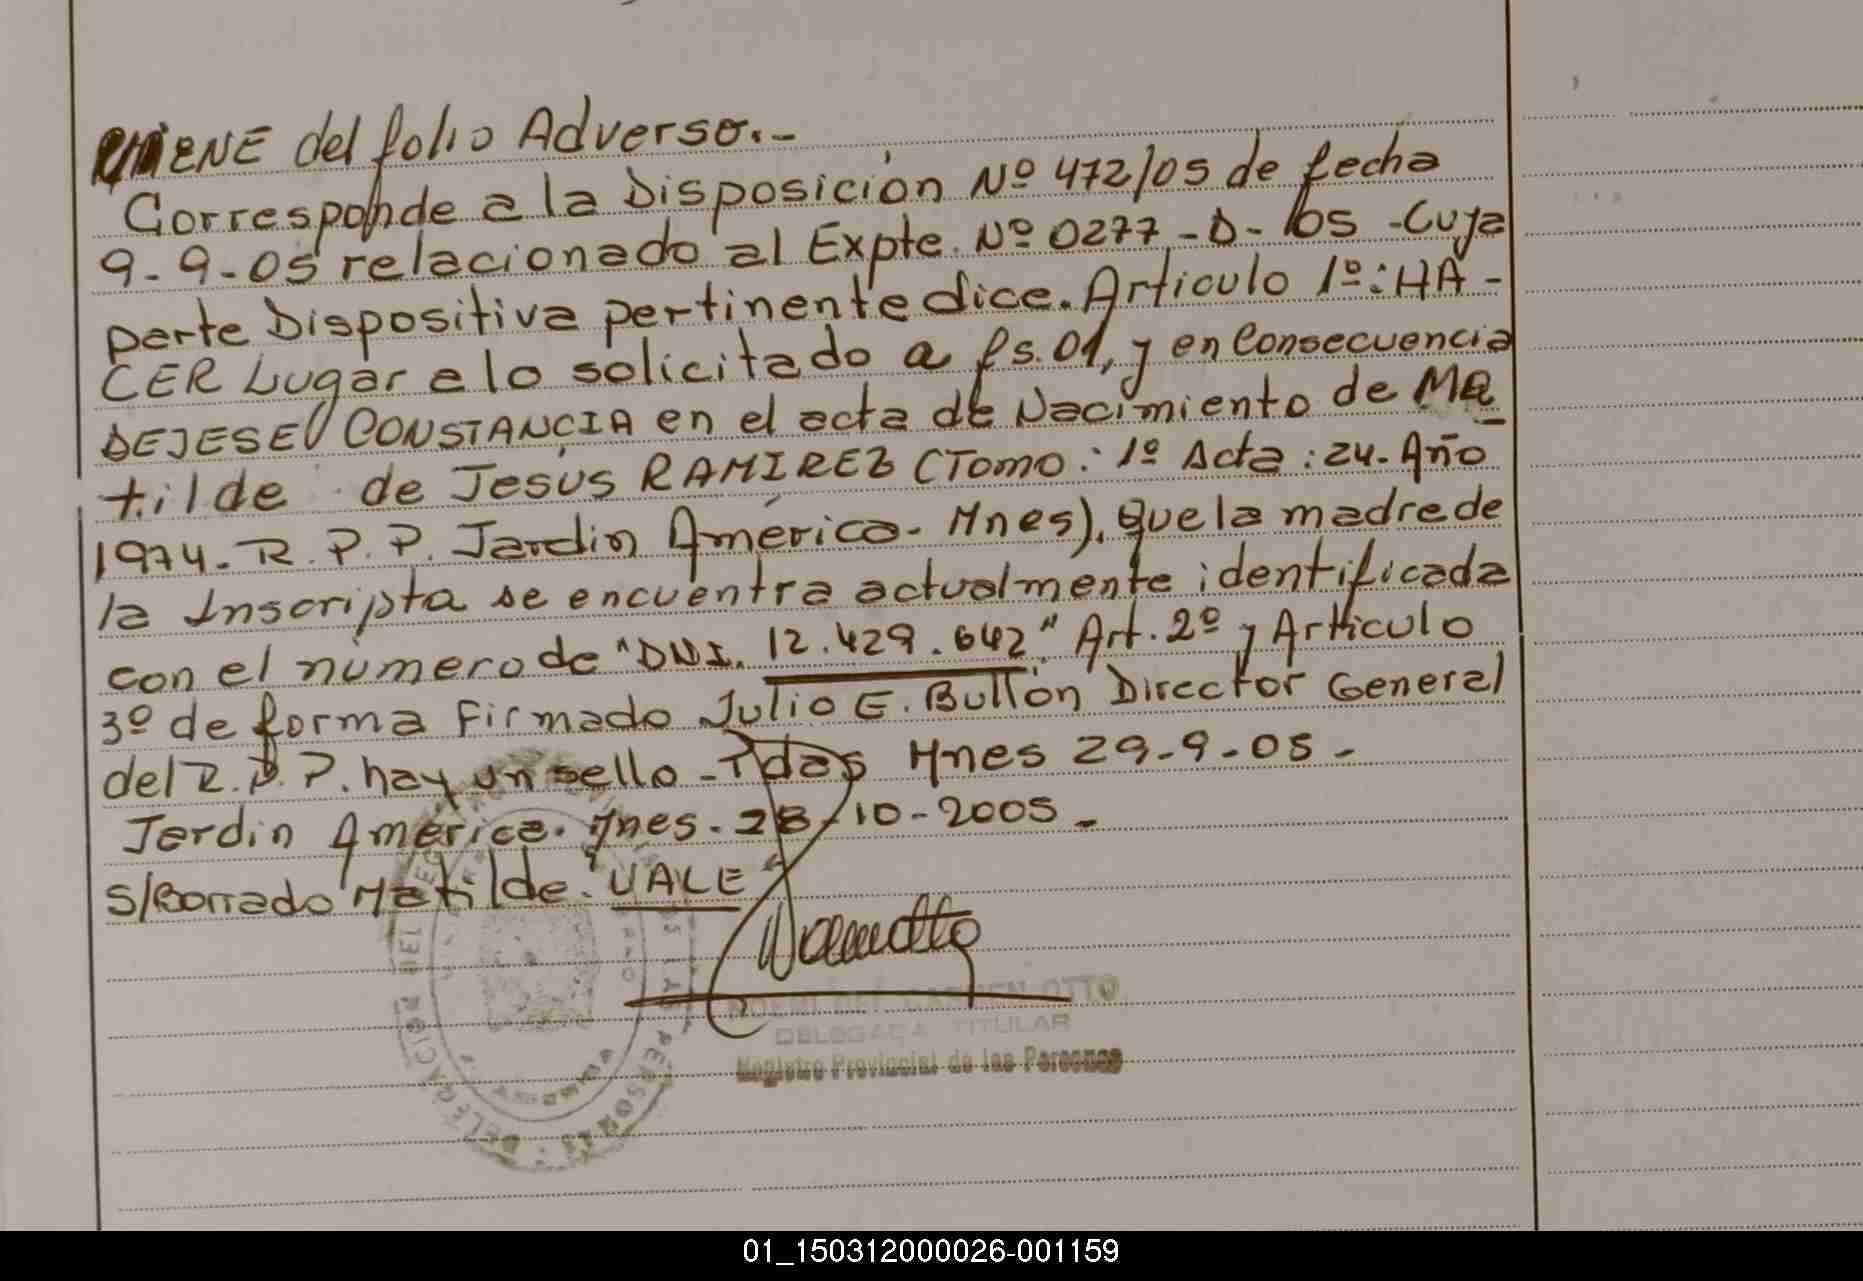 VIENE del folio Adverso.-
Corresponde a la Disposición Nº 472/05 de fecha
9-9-05 relacionado al Expte. Nº 0277-D-05-Cuya
parte Dispositiva pertinente dice. Articulo 1º: HA-
CER Lugar a lo solicitado a fs. 01, y en Consecuencia
DEJESE CONSTANCIA en el acta de Nacimiento de Ma
tilde de Jesús RAMIREZ (Tomo: 1º Acta: 24. Año
1974. R.P.P. Jardin América. Mnes), Que la madre de
la Inscripta se encuentra actualmente identificada
con el número de "DNI. 12.429.642". Art. 2º y Articulo
3º de forma Firmado Julio E. Bullón Director General
del R.P.P. hay un sello - Pdas Mnes 29-9-05-
Jardin América. Mnes. 28-10-2005-
S/Borrado "Matilde" VALE
DEL CARMEN OTTO
DELEGADA TITULAR
Registro Provincial de las Personas
DELEGACION DEL
PERSONAS
01_150312000026-001159